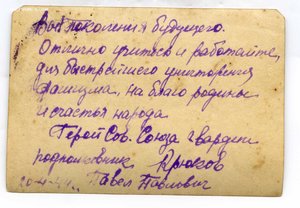 Вы поколения будущего.
Отлично учитесь и работайте,
для быстрейшего уничторения
фашизма, на благо родины
и счастья народа.
Герой Сов. Союза гвардии
подполковник Крюков
Павел Павлович